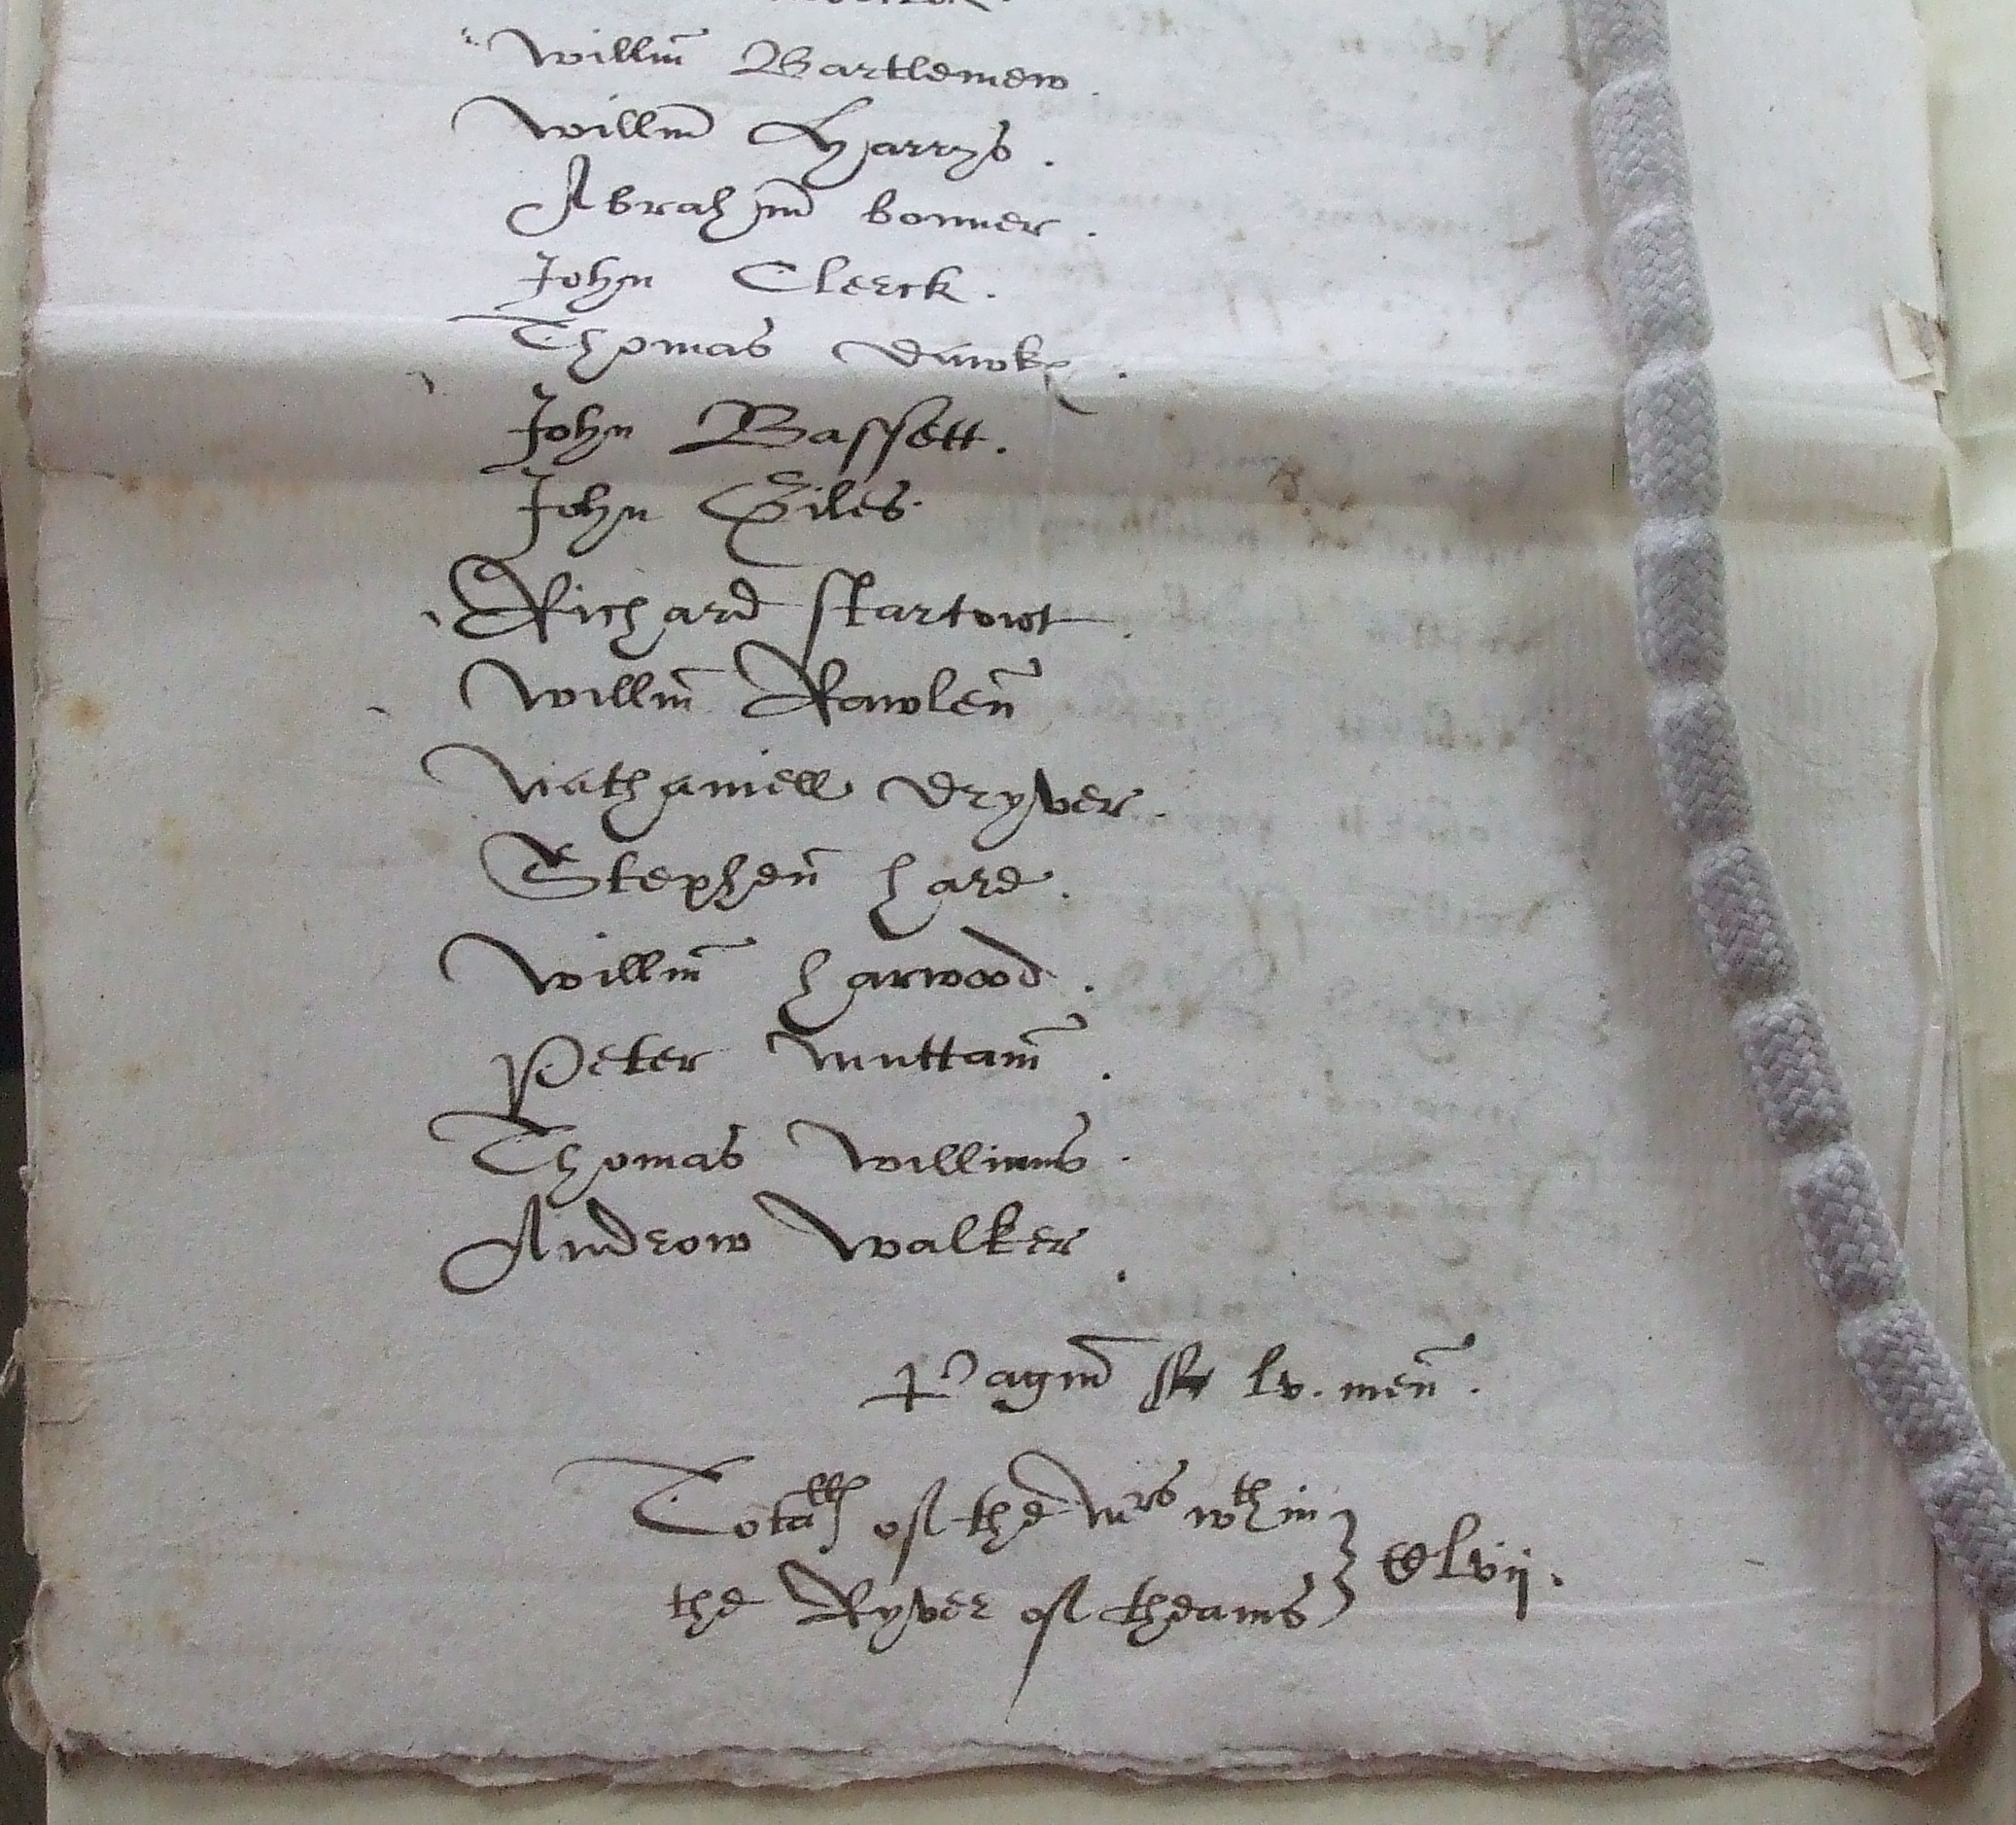 Willm Bartlemew.
Willm Harrys.
Abrahm bonner.
John Clerck.
Thomas
John Bassett.
John Giles.
Richard startowt.
Willm Rawlen
Nathaniell dryver.
Stephen hare.
Willm harwood.
Peter Nuttam.
Thomas Willims.
Androw Walker.
Pagin lv. men.
Totall of the Mrs wthin
the Ryver of theams } Clvij.